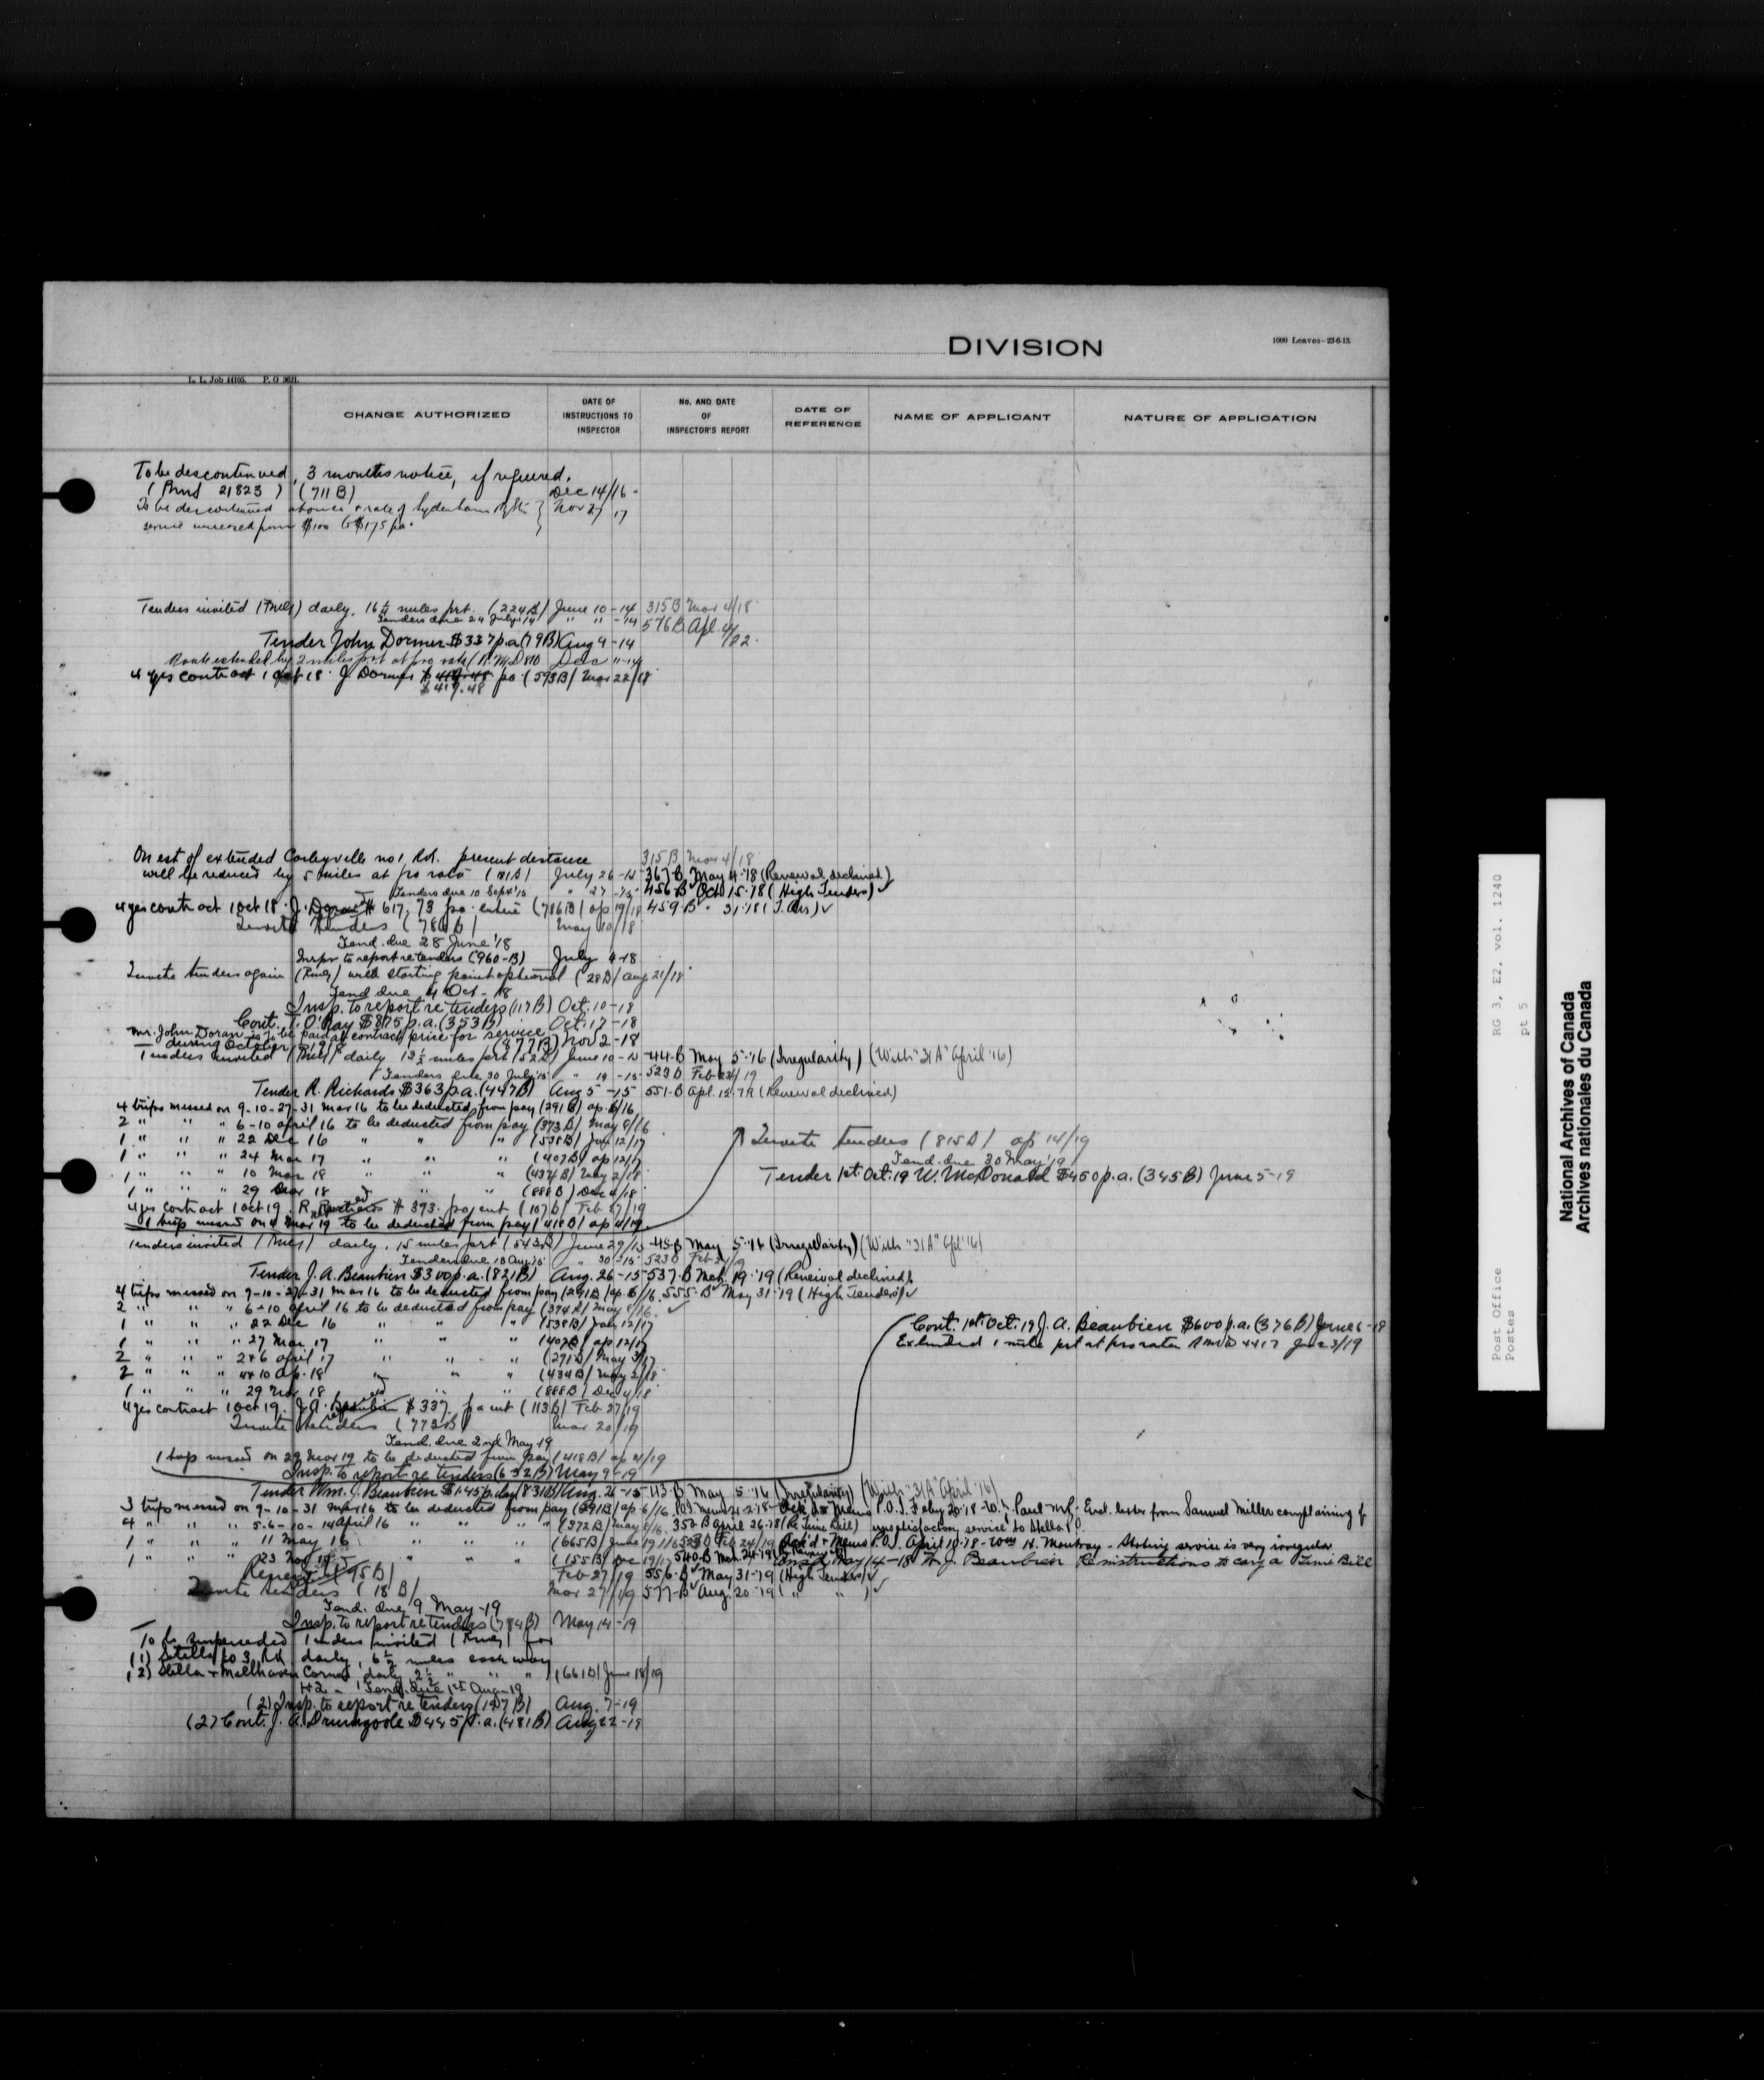 DIVISION
1000 Leaves-23-6-13.
L. L. Job 44105. P. O 3621.
CHANGE AUTHORIZED
DATE OF INSTRUCTIONS TO INSPECTOR
No. AND DATE OF INSPECTOR'S REPORT
DATE OF REFERENCE
NAME OF APPLICANT
NATURE OF APPLICATION
To be discontinued, 3 months notice, if required.
( 21823 ) (711 B) Dec 14/16
To be discontinued above & rate of Sydenham Nov 27 17
service increased from $100 to $175 pa.
Tenders invited (Rmls) daily, 16 1/4 miles prt. (224B) June 10-14 315B Mar 4/18
Tenders due 24 July '14 " " -14 576B Apl. 4/22
Tender John Dorner $337 p.a. (79B) Aug 4-14
Route extended by 2 miles prt at pro rata (R.M.D 810 Dec 11-14
4 yrs contract 1 Oct 18 J. Dorner pa. (593B) Mar 22/18
$419.48
On est of extended no 1 Rd. present distance 315B Mar 4/18
will be reduced by 5 miles at pro rata (181B) July 26-15 367-B May 4-'18 (Renewal declined)
Tenders due 10 Sept '15 " 27 -15 456-B Oct 15-'18 (High Tenders) ✓
4 yrs contract 1 Oct 18 J. Doran $617.73 pa. entire (786B) ap 19/18 459-B " 31-'18 ( ) ✓
Invite Tenders (786B) May 10/18
Tend. due 28 June '18
Inspr to report re tenders (960-B) July 4-18
Invite tenders again (Rmls) with starting point optional (28B) Aug 21/18
Tend due 4 Oct-18
Insp. to report re tenders (117B) Oct. 10-18
Cont. T. O'Ray $875 p.a. (353B) Oct. 17-18
Mr. John Doran is to be paid at contract price for service
during October 1918 (477B) Nov 2-18
Tenders invited (Rmls) daily 13 1/2 miles prt (52B) June 10-15 44-B May 5-'16 (Irregularity) (With "31A" April '16)
Tenders due 30 July '15 " 19 -15 523B Feb 24/19
Tender R. Richards $363 p.a. (447B) Aug 5-15 551-B Apl. 12-'19 (Renewal declined)
4 trips missed on 9-10-27-31 Mar 16 to be deducted from pay (291B) ap. 6/16
2 " " " 6-10 April 16 to be deducted from pay (373B) May 8/16
1 " " " 22 Dec 16 " " " (538B) Jan 12/17
1 " " " 24 Mar 17 " " " (407B) ap 12/17
1 " " " 10 Mar 18 " " " (434B) May 2/18
1 " " " 29 Nov 18 " " " (888B) Dec 4/18
4 yrs contract 1 Oct 19 R. Richards $393. pa ent (107B) Feb 27/19
1 trip missed on 4 Mar 19 to be deducted from pay (418B) ap 4/19
Invite tenders (815B) ap 14/19
Tend. due 30 May '19
Tender 1st Oct. 19 W. McDonald $450 p.a. (345B) June 5-19
Tenders invited (Rmls) daily, 15 miles prt (543B) June 29/15 45-B May 5-'16 (Irregularity) (With "31A" Apl '16)
Tenders due 18 Aug '15 " 30-15 523B Feb 24/19
Tender J. A. Beaubien $300 p.a. (821B) Aug. 26-15 537-B Mch. 19-'19 (Renewal declined)
4 trips missed on 9-10-27-31 Mar 16 to be deducted from pay (291B) ap. 6/16 555-B May 31-'19 (High Tenders) ✓
2 " " " 6-10 April 16 to be deducted from pay (374B) May 8/16 ✓
1 " " " 22 Dec 16 " " " (538B) Jan 12/17
1 " " " 27 Mar 17 " " " (407B) ap 12/17
2 " " " 2+6 April 17 " " " (291B) May 3/17
2 " " " 4+10 Ap. 18 " " " (434B) May 2/18
1 " " " 29 Nov 18 " " " (888B) Dec 4/18
4 yrs contract 1 Oct 19. J. A. Beaubien $337. pa ent (113B) Feb 27/19
Invite tenders (773B) Mar 20/19
Tend. due 2nd May 19
1 trip missed on 29 Mar 19 to be deducted from pay (418B) ap 4/19
Insp. to report re tenders (632B) May 9-19
Cont. 1st Oct. 19 J. A. Beaubien $600 p.a. (376B) June 6-19
Extended 1 mile prt at pro rata RMD 4417 Jan 23/19
Tender Wm. J. Beaubien $1.45 p. day (831B) Aug. 26-15 43-B May 5-'16 (Irregularity) (With "31A" April '16)
3 trips missed on 9-10-31 Mar 16 to be deducted from pay (291B) ap 6/16 Memo P.O.I. Feby 20-'18 Encl. letter from Samuel Miller complaining of
4 " " " 5-6-10-14 April 16 " " " (372B) May 8/16 350 B April 26-18 (Re Time Bill) unsatisfactory service to Stella P.O.
1 " " " 11 May 16 " " " (665B) June 19/16 523B Feb 24/19 Ack'd + Memo P.O.I. April 10-18 - Wm H. Montray - Stating service is very irregular
1 " " " 23 Nov " " " (155B) Dec 19/17 540-B Mch. 24-'19 May 14-18 W. J. Beaubien Re instructions to carry a Time Bill
Renewal (95B) Feb 27/19 556-B May 31-'19 (High Tenders) ✓
Invite tenders (18B) Mar 27/19 577-B Aug. 20-'19 ( " " ) ✓
Tend. due 9 May-19
Insp. to report re tenders (784B) May 14-19
To be superseded Tenders invited (Rmls) for
(1) Stella to 3 Rd daily, 6 1/2 miles each way
(2) Stella + Millhaven Corner daily 2 1/2 " " " (661B) June 18/19
1+2 - Tend. due 1st Aug-19
(2) Insp. to report re tenders (197B) Aug. 7-19
(2) Cont. J. A. Drumgoole $445 p.a. (481B) Aug 22-19
Post Office
Postes
RG 3, E2, vol. 1240
pt 5
National Archives of Canada
Archives nationales du Canada